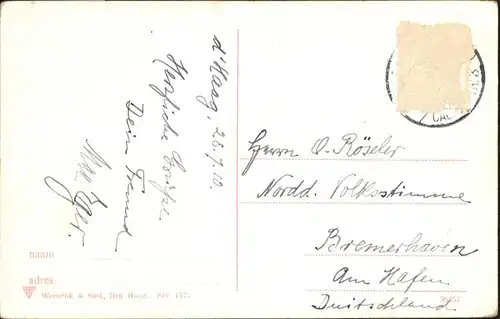 d'Haag, 28.7.10.
Herzliche Grüße.
Dein Freund
Herrn O. Röseler
Nordd. Volksstimme
Bremerhaven
Am Hafen
Duitschland
naam
adres
Weenenk & Snel, Den Haag. Ser 157.